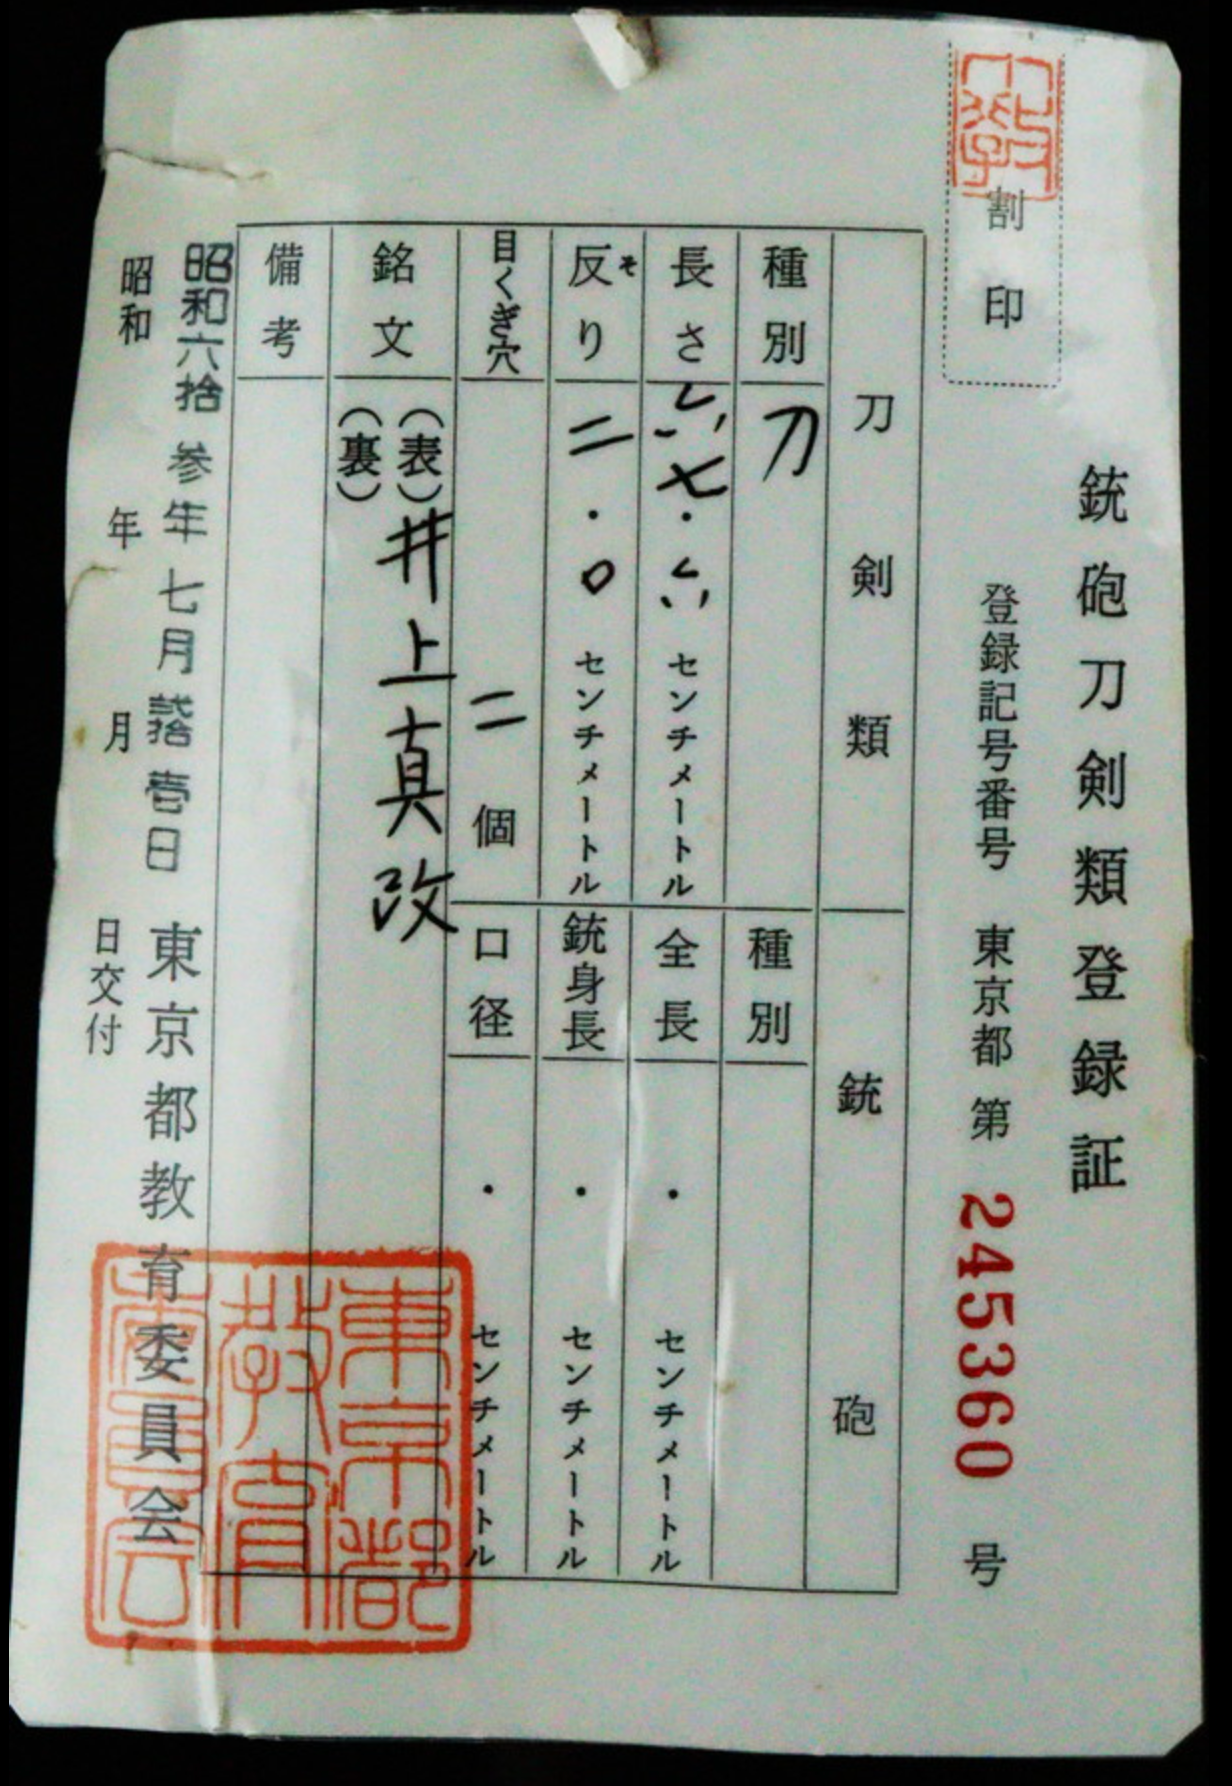 銃砲刀剣類登録証
割印
登録記号番号 東京都 第 245360 号
刀剣類
種別 刀
長さ 六七・六 センチメートル
反り そ 二・〇 センチメートル
目くぎ穴 二個
銘文 (表) 井上真改
(裏)
備考
銃砲
種別
全長 ・ センチメートル
銃身長 ・ センチメートル
口径 ・ センチメートル
昭和六拾参年七月弐拾壱日
東京都教育委員会
昭和 年 月 日交付
東京都教育委員会